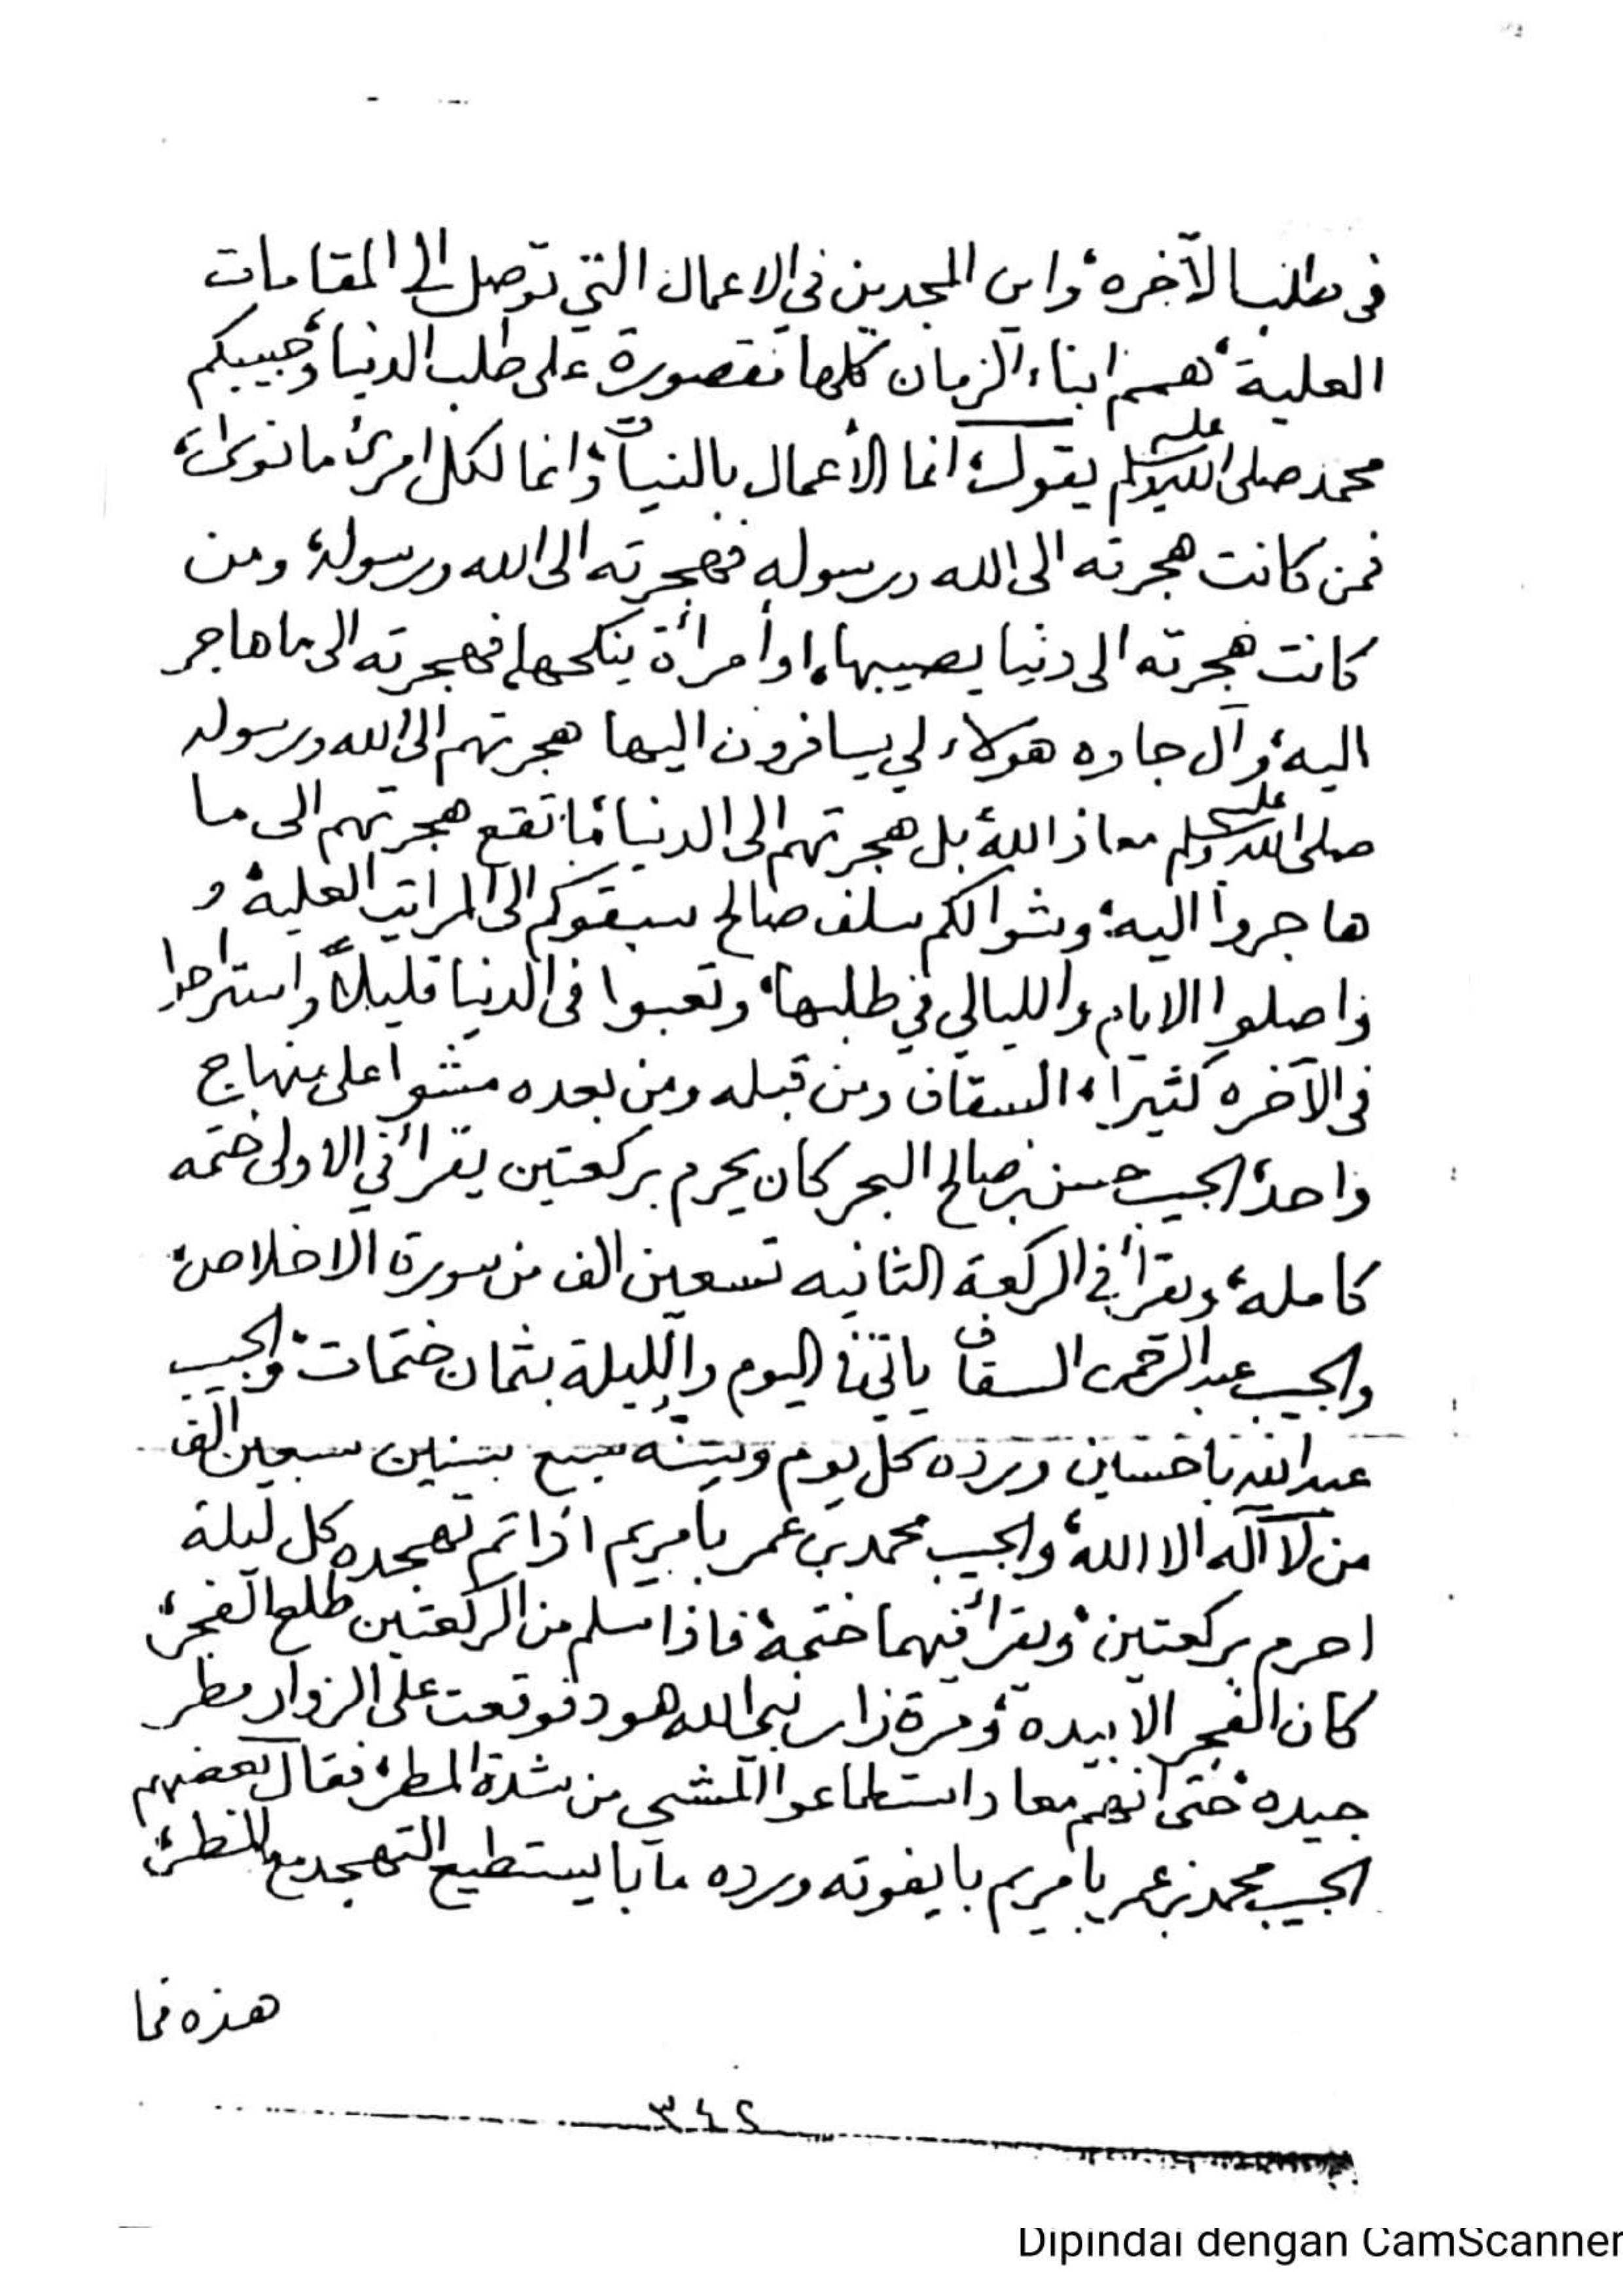 في طلب الآخره، واين المجدين في الاعمال التي توصل الى المقامات
العلية، همم ابناء الزمان كلها مقصورة على طلب الدنيا، وحبيبكم
محمد صلى الله عليه وسلم يقول، انما الأعمال بالنيات، وانما لكل امرئ ما نوى،
فمن كانت هجرته الى الله ورسوله فهجرته الى الله ورسوله، ومن
كانت هجرته الى دنيا يصيبها، او أمرأة ينكحها، فهجرته الى ما هاجر
اليه، وآل جاوه هولاء لي يسافرون اليها هجرتهم الى الله ورسوله
صلى الله عليه وسلم معاذ الله، بل هجرتهم الى الدنيا، فاتقع هجرتهم الى ما
هاجروا اليه، وشوا لكم سلف صالح سبقوكم الى المراتب العلية، و
واصلوا الايام والليالي في طلبها، وتعبوا في الدنيا قليلاً واستراحوا
في الآخره كثيرا، السقاف ومن قبله ومن بعده مشوا على منهاج
واحد، الحبيب حسن بن صالح البحر كان يحرم بركعتين يقرأ في الاولى ختمه
كامله، ويقرأ في الركعة الثانيه تسعين الف من سورة الاخلاص،
والحبيب عبد الرحمن السقاف ياتي في اليوم والليلة بثمان ختمات، والحبيب
عبد الله ورده كل يوم سبعين الف
من لا آله الا الله، والحبيب محمد بن عمر بامريم اذا تم تهجده كل ليلة
احرم بركعتين، ويقرأ فيهما ختمة، فاذا سلم من الركعتين طلع الفجر،
كان الفجر الا بيده، ومرة زار نبي الله هود فوقعت على الزوار مطر
جيده، حتى انهم معاد استطاعوا المشي من شدة المطر، فقال بعضهم
الحبيب محمد بن عمر بامريم بايفوته ورده مابا يستطيع التهجد مع المطر،
هذه فما
٣٤٢
Dipindai dengan CamScanner